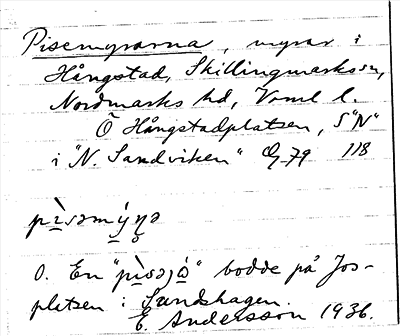 Pisemyrarna, myrar i
Hångstad, Skillingmarks sn,
Nordmarks hd, Vrml l.
Ö Hångstadplatsen, S "N"
i "N. Sandviken" 79 118
pì̱səmý̱ṇə
O. En "pì̱səjò̱" bodde på Jos-
pletsen i Sundshagen.
E. Andersson 1936.